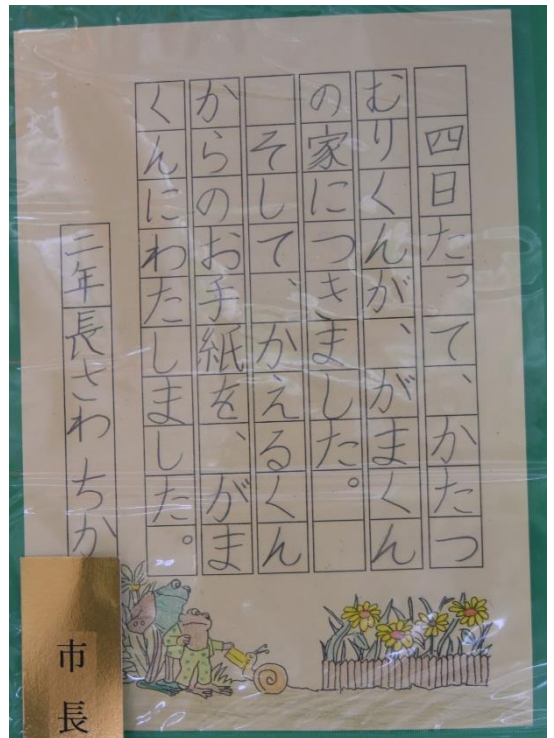 四日たって、かたつ
むりくんが、がまくん
の家につきました。
そして、かえるくん
からのお手紙を、がま
くんにわたしました。
二年長さわちか
市長